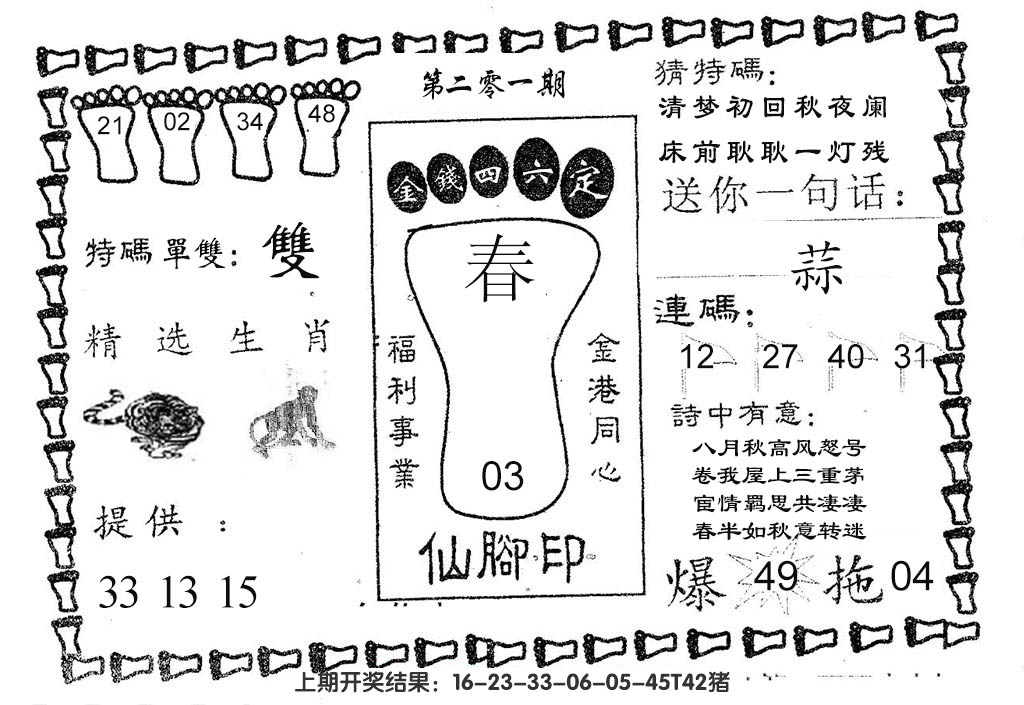 第二零一期
21 02 34 48
特碼單雙: 雙
精选生肖
提供:
33 13 15
金錢四六定
春
福利事業
金港同心
03
仙腳印
猜特碼:
清梦初回秋夜阑
床前耿耿一灯残
送你一句话:
蒜
連碼:
12 27 40 31
詩中有意:
八月秋高风怒号
卷我屋上三重茅
宦情羁思共凄凄
春半如秋意转迷
爆 49 拖 04
上期开奖结果: 16-23-33-06-05-45T42猪